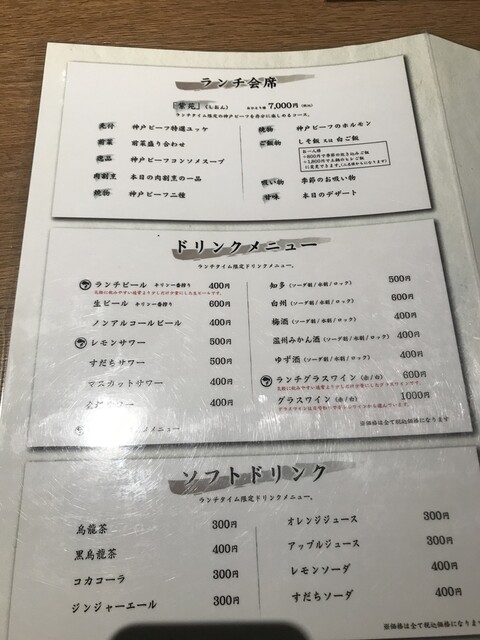 ランチ会席
「紫苑」(しおん) 7,000円(税込)
ランチタイム限定の神戸ビーフを存分に楽しめるコース。
先付 神戸ビーフ特選ユッケ
前菜 前菜盛り合わせ
逸品 神戸ビーフコンソメスープ
肉割烹 本日の肉割烹の一品
焼物 神戸ビーフ二種
焼物 神戸ビーフのホルモン
ご飯物 しそ飯 又は 白ご飯
お一人様
+800円で季節の炊き込みご飯
吸い物 季節のお吸い物
甘味 本日のデザート
ドリンクメニュー
ランチタイム限定ドリンクメニュー。
ランチビール キリン一番搾り 400円
生ビール キリン一番搾り 600円
ノンアルコールビール 400円
レモンサワー 500円
すだちサワー 500円
マスカットサワー 400円
400円
メニュー
知多(ソーダ割/水割/ロック) 500円
白州(ソーダ割/水割/ロック) 600円
梅酒(ソーダ割/水割/ロック) 400円
温州みかん酒(ソーダ割/水割/ロック) 400円
ゆず酒(ソーダ割/水割/ロック) 400円
ランチグラスワイン(赤/白) 600円
グラスワイン(赤/白) 1000円
※価格は全て税込価格になります
ソフトドリンク
ランチタイム限定ドリンクメニュー。
烏龍茶 300円
黒烏龍茶 400円
コカコーラ 300円
ジンジャーエール 300円
オレンジジュース 300円
アップルジュース 300円
レモンソーダ 400円
すだちソーダ 400円
※価格は全て税込価格になります